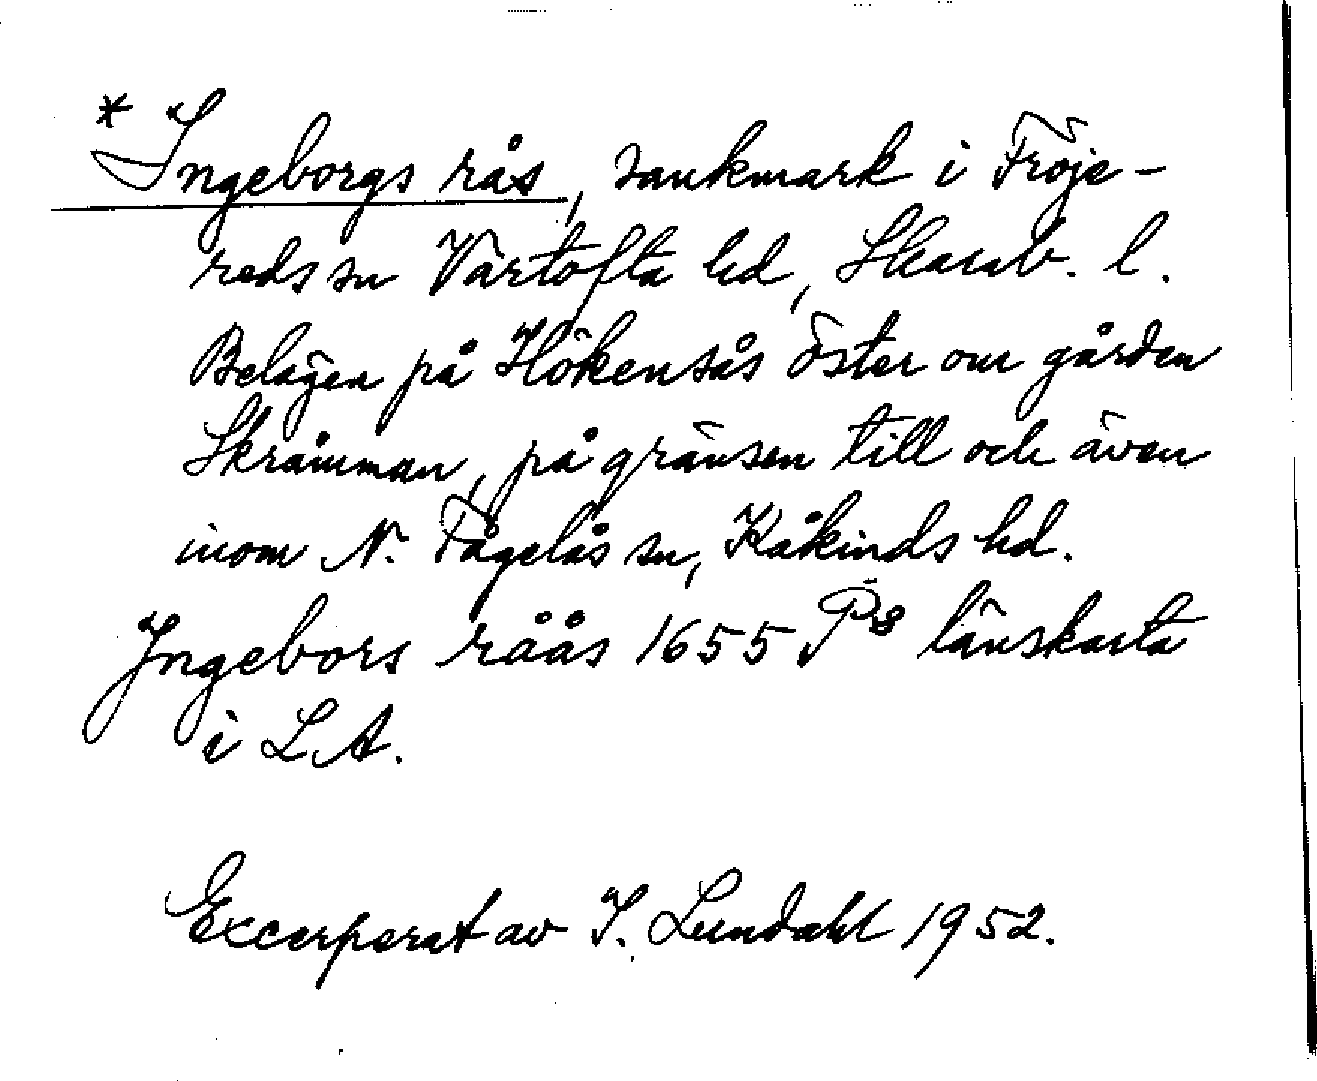 * Ingeborgs rås, sankmark i Fröje-
reds sn Vartofta hd, Skarab. l.
Belägen på Hökensås öster om gården
Skrämman, på gränsen till och även
inom N. Fågelås sn, Kåkinds hd.
Ingebors råås 1655 P8 länskarta
i LA.
Excerperat av I. Lundahl 1952.